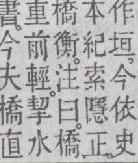 作垣，今依史
本紀索隱、正
橋衡。注曰：橋、
重前輕，挈水
書。今大橋直